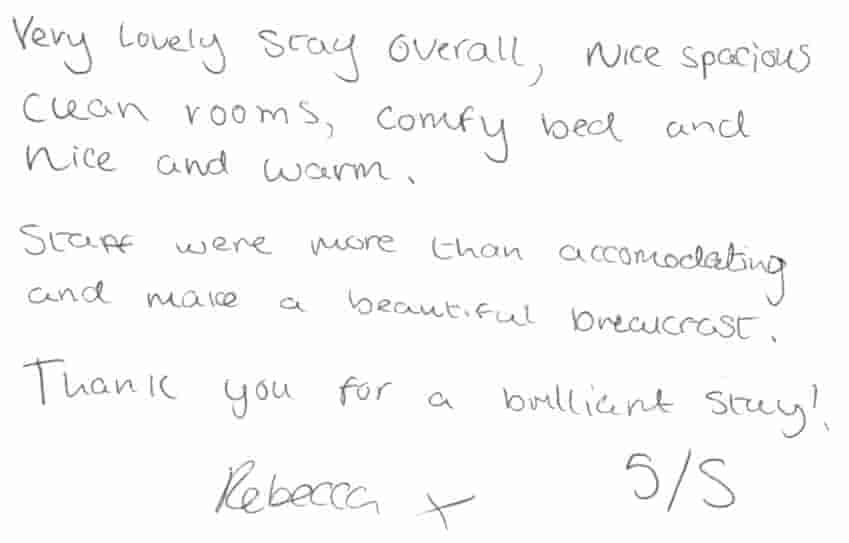 Very Lovely Stay overall, Nice spacious
clean rooms, comfy bed and
nice and warm.
Staff were more than accomodating
and make a beautiful breakfast.
Thank you for a brilliant stay!
Rebecca x 5/5